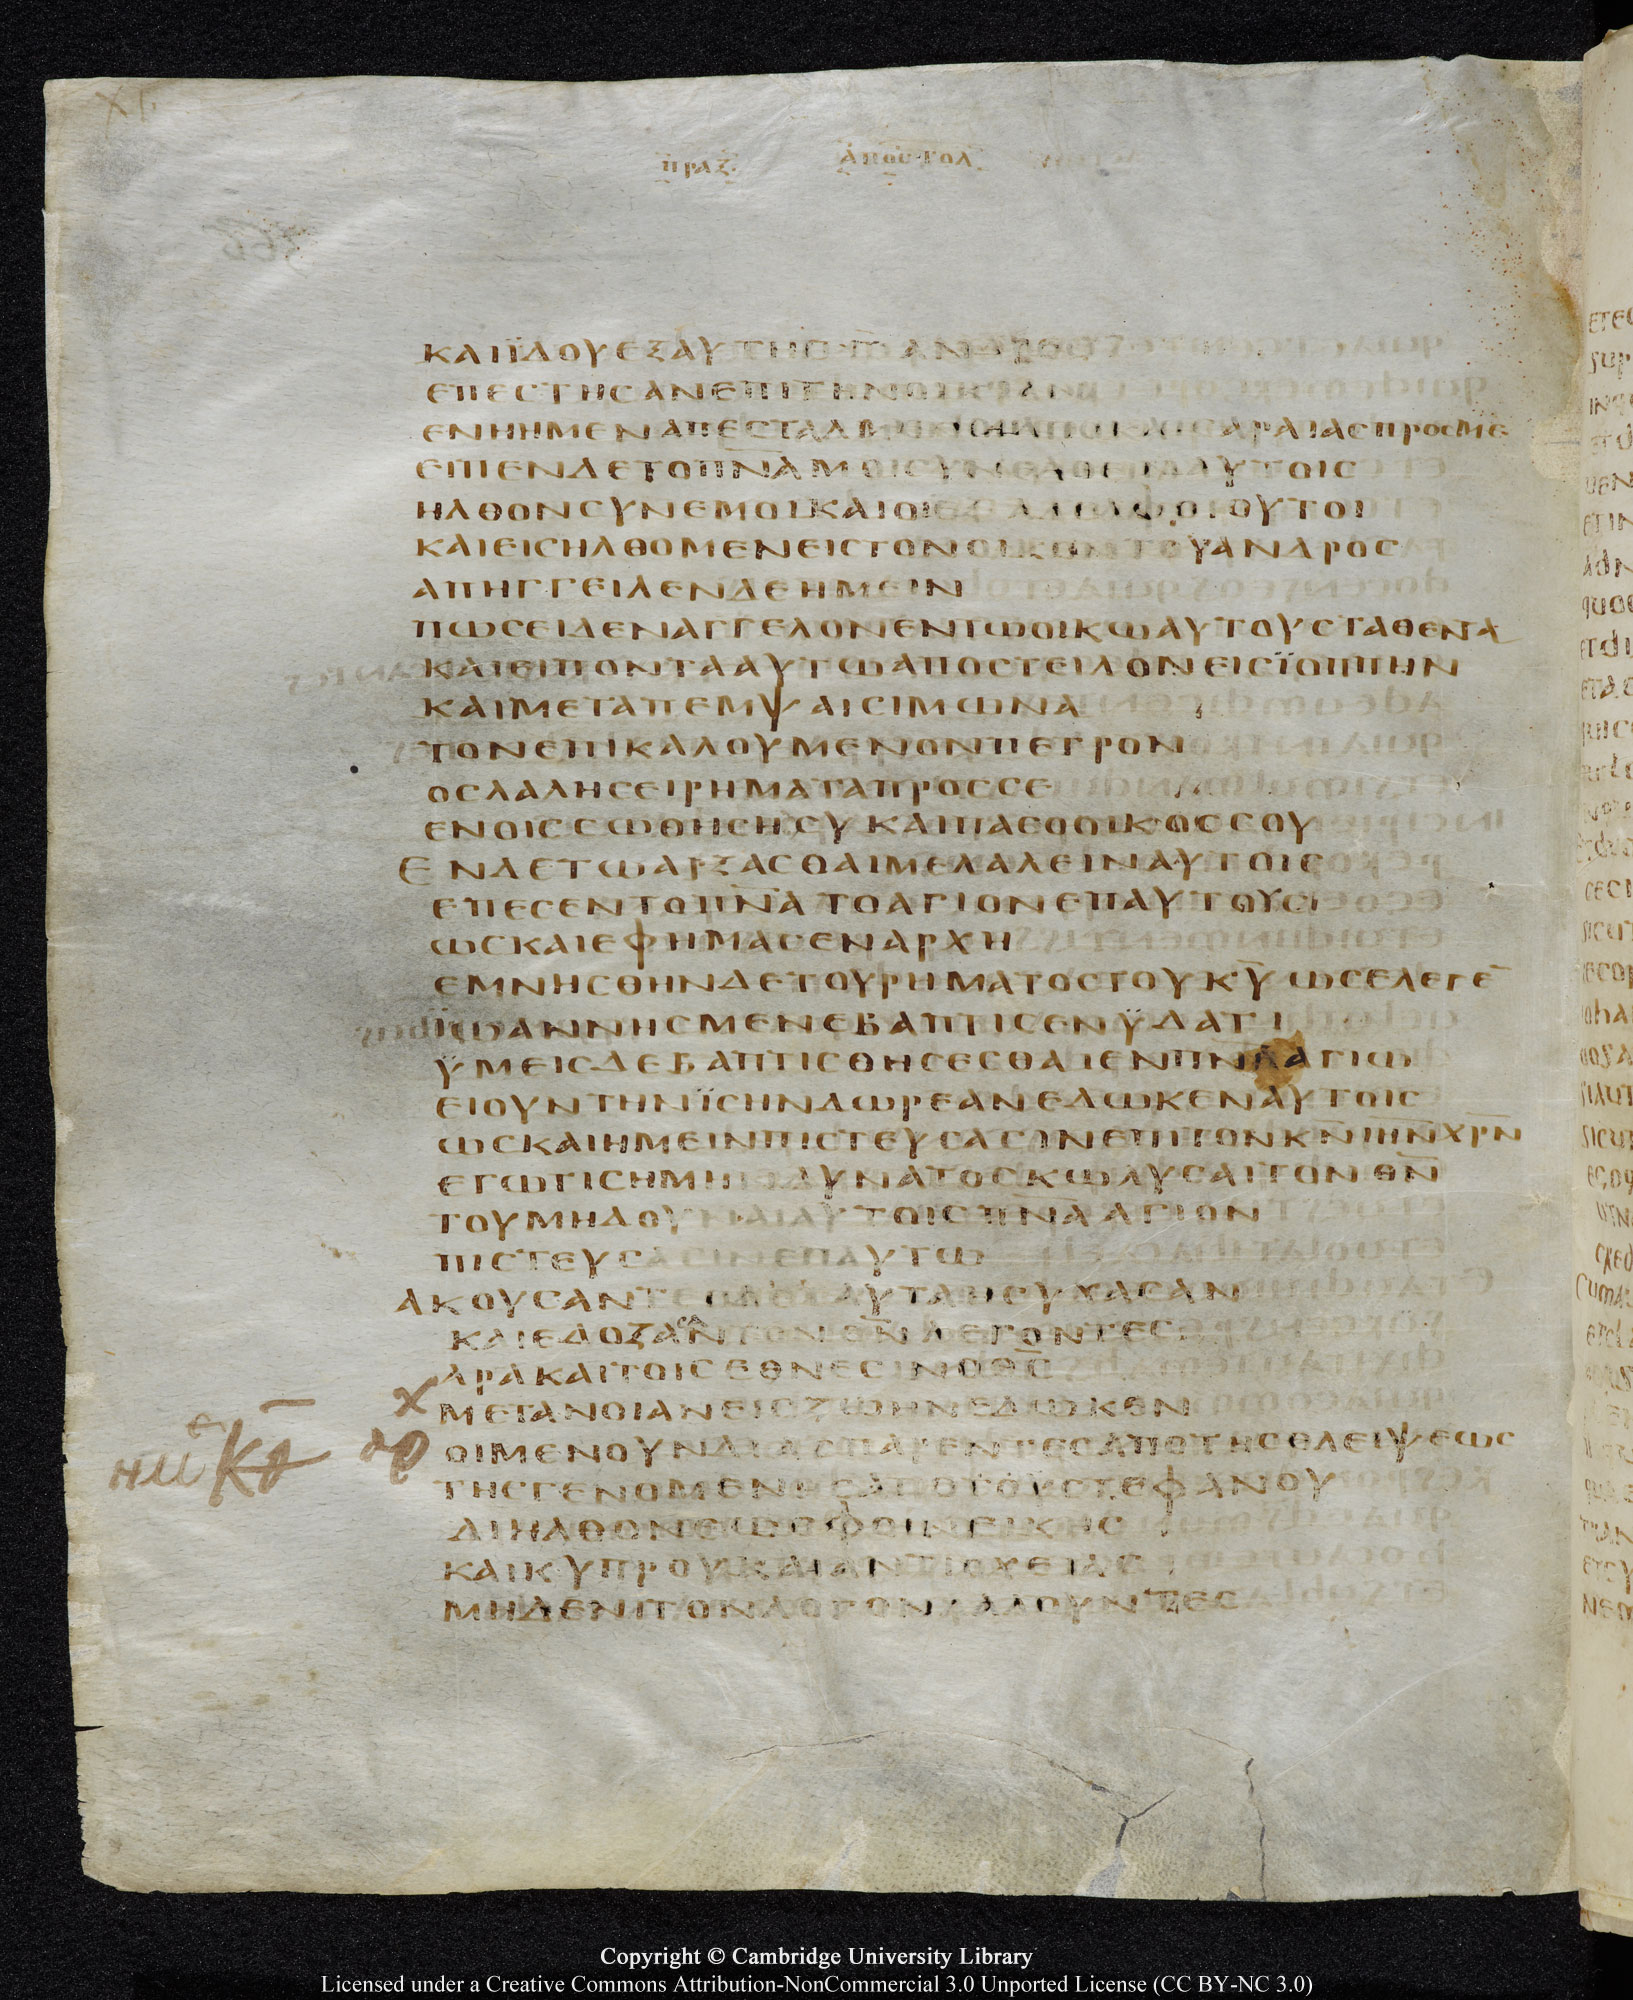 πραξ αποστολ
ΚΑΙ ΪΔΟΥ ΕΞΑΥΤΗΣ Γ̅ ΑΝΔΡΕΣ
ΕΠΕΣΤΗΣΑΝ ΕΠΙ ΤΗΝ ΟΙΚΙΑΝ
ΕΝ Η ΗΜΕΝ ΑΠΕΣΤΑΛΜΕΝΟΙ ΑΠΟ ΚΑΙΣΑΡΑΙΑΣ ΠΡΟΣ ΜΕ
ΕΙΠΕΝ ΔΕ ΤΟ Π̅Ν̅Α̅ ΜΟΙ ΣΥΝΕΛΘΕΙΝ ΑΥΤΟΙΣ
ΗΛΘΟΝ ΣΥΝ ΕΜΟΙ ΚΑΙ ΟΙ ΑΔΕΛΦΟΙ ΟΥΤΟΙ
ΚΑΙ ΕΙΣΗΛΘΟΜΕΝ ΕΙΣ ΤΟΝ ΟΙΚΟΝ ΤΟΥ ΑΝΔΡΟΣ
ΑΠΗΓΓΕΙΛΕΝ ΔΕ ΗΜΕΙΝ
ΠΩΣ ΕΙΔΕΝ ΑΓΓΕΛΟΝ ΕΝ ΤΩ ΟΙΚΩ ΑΥΤΟΥ ΣΤΑΘΕΝΤΑ
ΚΑΙ ΕΙΠΟΝΤΑ ΑΥΤΩ ΑΠΟΣΤΕΙΛΟΝ ΕΙΣ ΪΟΠΠΗΝ
ΚΑΙ ΜΕΤΑΠΕΜΨΑΙ ΣΙΜΩΝΑ
ΤΟΝ ΕΠΙΚΑΛΟΥΜΕΝΟΝ ΠΕΤΡΟΝ
ΟΣ ΛΑΛΗΣΕΙ ΡΗΜΑΤΑ ΠΡΟΣ ΣΕ
ΕΝ ΟΙΣ ΣΩΘΗΣΗ ΣΥ ΚΑΙ ΠΑΣ Ο ΟΙΚΟΣ ΣΟΥ
ΕΝ ΔΕ ΤΩ ΑΡΞΑΣΘΑΙ ΜΕ ΛΑΛΕΙΝ ΑΥΤΟΙΣ
ΕΠΕΣΕΝ ΤΟ Π̅Ν̅Α̅ ΤΟ ΑΓΙΟΝ ΕΠ ΑΥΤΟΥΣ
ΩΣ ΚΑΙ ΕΦ ΗΜΑΣ ΕΝ ΑΡΧΗ
ΕΜΝΗΣΘΗΝ ΔΕ ΤΟΥ ΡΗΜΑΤΟΣ ΤΟΥ Κ̅Υ̅ ΩΣ ΕΛΕΓΕ̅
ΪΩΑΝΝΗΣ ΜΕΝ ΕΒΑΠΤΙΣΕΝ ΫΔΑΤΙ
ΫΜΕΙΣ ΔΕ ΒΑΠΤΙΣΘΗΣΕΣΘΑΙ ΕΝ Π̅Ν̅Ι̅ ΑΓΙΩ
ΕΙ ΟΥΝ ΤΗΝ ΪΣΗΝ ΔΩΡΕΑΝ ΕΔΩΚΕΝ ΑΥΤΟΙΣ
ΩΣ ΚΑΙ ΗΜΕΙΝ ΠΙΣΤΕΥΣΑΣΙΝ ΕΠΙ ΤΟΝ Κ̅Ν̅ ΙΗ̅Ν̅ ΧΡ̅Ν̅
ΕΓΩ ΤΙΣ ΗΜΗ ΔΥΝΑΤΟΣ ΚΩΛΥΣΑΙ ΤΟΝ Θ̅Ν̅
ΤΟΥ ΜΗ ΔΟΥΝΑΙ ΑΥΤΟΙΣ Π̅Ν̅Α̅ ΑΓΙΟΝ
ΠΙΣΤΕΥΣΑΣΙΝ ΕΠ ΑΥΤΩ
ΑΚΟΥΣΑΝΤΕΣ ΔΕ ΤΑΥΤΑ ΗΣΥΧΑΣΑΝ
ΚΑΙ ΕΔΟΞΑΣΑΝ ΤΟΝ Θ̅Ν̅ ΛΕΓΟΝΤΕΣ
ΑΡΑ ΚΑΙ ΤΟΙΣ ΕΘΝΕΣΙΝ Ο Θ̅Σ̅
ΜΕΤΑΝΟΙΑΝ ΕΙΣ ΖΩΗΝ ΕΔΩΚΕΝ
ΟΙ ΜΕΝ ΟΥΝ ΔΙΑΣΠΑΡΕΝΤΕΣ ΑΠΟ ΤΗΣ ΘΛΕΙΨΕΩΣ
ΤΗΣ ΓΕΝΟΜΕΝΗΣ ΑΠΟ ΤΟΥ ΣΤΕΦΑΝΟΥ
ΔΙΗΛΘΟΝ ΕΩΣ ΦΟΙΝΕΙΚΗΣ
ΚΑΙ ΚΥΠΡΟΥ ΚΑΙ ΑΝΤΙΟΧΕΙΑΣ
ΜΗΔΕΝΙ ΤΟΝ ΛΟΓΟΝ ΛΑΛΟΥΝΤΕΣ
Copyright © Cambridge University Library
Licensed under a Creative Commons Attribution-NonCommercial 3.0 Unported License (CC BY-NC 3.0)